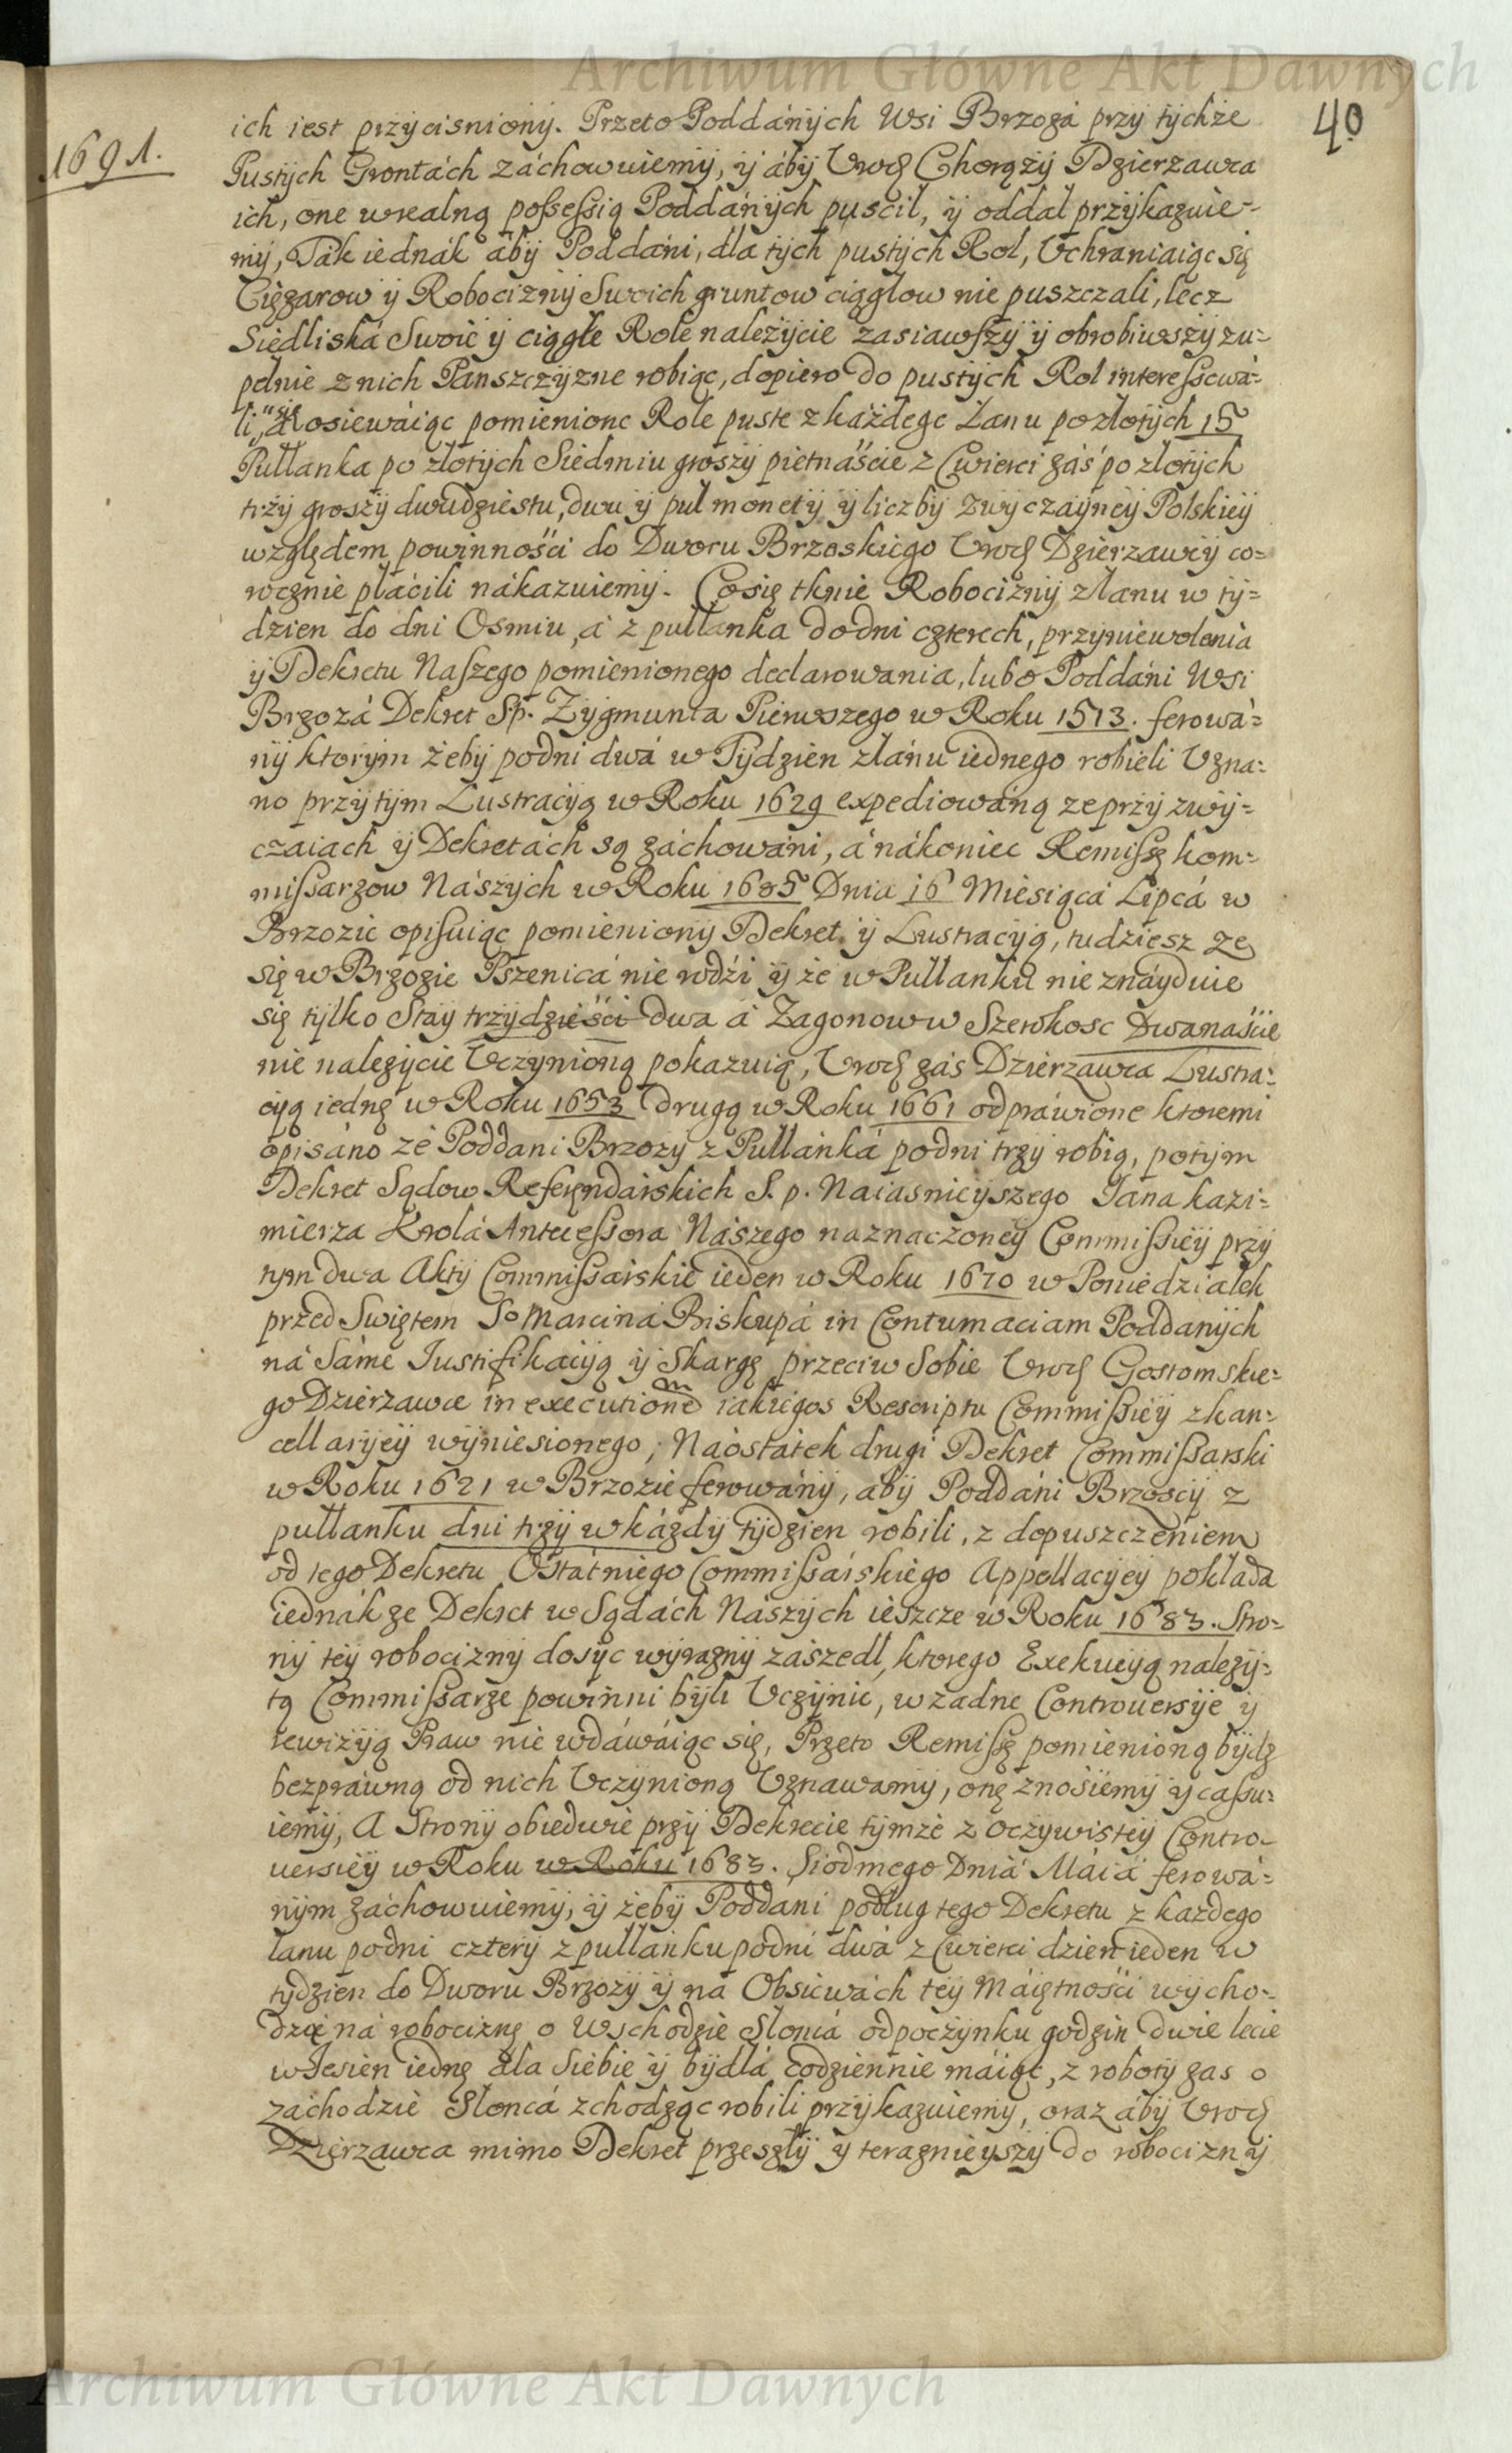 Archiwum Główne Akt Dawnych
40
1691.
ich iest przycisniony. Przeto Poddánych Wsi Brzoza przy tychże
Pustych Grontách záchowuiemy, y áby Vrodz Chorąży Dzierzawca
ich, one wrealną possessią Poddánych puscił, y oddał przykazuie-
my, Ták iednák áby Poddáni, dla tych pustych Rol, Vchraniaiąc się
Ciężarow y Robocizny Swoich gruntow ciągłow nie puszczali, lecz
Siedliská Swoie y ciągłe Role należycie zasiawszy y obrobiwszy zu=
pełnie z nich Panszczyzne robiąc, dopiero do pustych Rol interessowá=
li się, á osiewáiąc pomienione Role puste z káżdego Łanu po złotych 15
Pułłanka po złotych Siedmiu groszy pietnáście z Cwierci záś po złotych
trzy groszy dwudziestu, dwu y puł monety y liczby zwyczáyney Polskiey
względem powinnośći do Dworu Brzoskiego Vrodz Dzierzawcy co=
rocznie płácili nákazuiemy. Co się tknie Robocizny z łanu w ty=
dzien do dni Osmiu, á z pułłanka do dni czterech, przyniewolenia
y Dekretu Naszego pomienionego declarowania, lubo Poddáni Wsi
Brzozá Dekret Sp. Zygmunta Pierwszego w Roku 1513. ferowá=
ny ktorym żeby po dni dwá w Tydzien z łánu iednego robieli Vzna=
no przytym Lustracyą w Roku 1629 expediowáną ze przy zwy=
czaiach y Dekretách są záchowáni, á nákoniec Remissę kom=
missarzow Nászych w Roku 1685 Dnia 16 Miesiącá Lipcá w
Brzozie opisuiąc pomieniony Dekret y Lustracyą, tudziesz że
się w Brzozie Pszenicá nie rodźi y że w Pułłanku nie znáyduie
się tylko Stay trzydzieści dwa á Zagonow w Szerokosc Dwanaście
nie należycie Vczynioną pokazuią, Vrodz záś Dzierzawca Lustra=
cyą iednę w Roku 1653 drugą w Roku 1661 odpráwione ktoremi
opisáno że Poddani Brzozy z Pułłánká po dni trzy robią, potym
Dekret Sądow Referendárskich S. p. Naiasnieyszego Jana Kazi=
mierza Krolá Antecessora Nászego naznaczoney Commissiey przy
tym dwa Akty Commissárskie ieden w Roku 1670 w Poniedziałek
przed Swiętem So Marciná Biskupá in Contumaciam Poddánych
ná Sáme Iustifikácyą y Skargę przeciw Sobie Vrodz Gostomskie=
go Dzierzawce in executionem iakiegos Rescriptu Commissiey z kan=
cellaryey wyniesionego; Náostátek drugi Dekret Commissarski
w Roku 1621 w Brzozie ferowány, áby Poddáni Brzoscy z
pułłanku dni trzy w káżdy tydzien robili, z dopuszczeniem
od tego Dekretu Ostátniego Commissárskiego Appellacyey pokłada
iednák że Dekret w Sądách Nászych ieszcze w Roku 1683. Stro=
ny tey robocizny dosyc wyrażny zaszedł, ktorego Exekucyą należy=
tą Commissarze powinni byli Vczynic, w żadne Controuersye y
rewizyą Praw nie wdáwáiąc się, Przeto Remissę pomienioną bydz
bezpráwną od nich Vczynioną Vznawamy, onę znosiemy y cassu=
iemy, A Strony obiedwie przy Dekrecie tymże z Oczywistey Contro=
uersiey w Roku w Roku 1683. Siodmego Dniá Máiá ferowá=
nym záchowuiemy, y żeby Poddani podług tego Dekretu z każdego
łanu po dni cztery z pułłanku po dni dwá z Cwierci dzien ieden w
tydzien do Dworu Brzozy y ná Obsiewách tey Máiętnośći wycho=
dzıć ná robociznę o Wschodzie Słoncá odpoczynku godzin dwie lecie
w Jesien iednę dla Siebie y bydłá Codziennie máiąc, z roboty zas o
záchodzie Słoncá zchodząc robili przykazuiemy, oraz áby Vrodz
Dzierzawca mimo Dekret przeszły y teraznieyszy do robocizny
Archiwum Główne Akt Dawnych